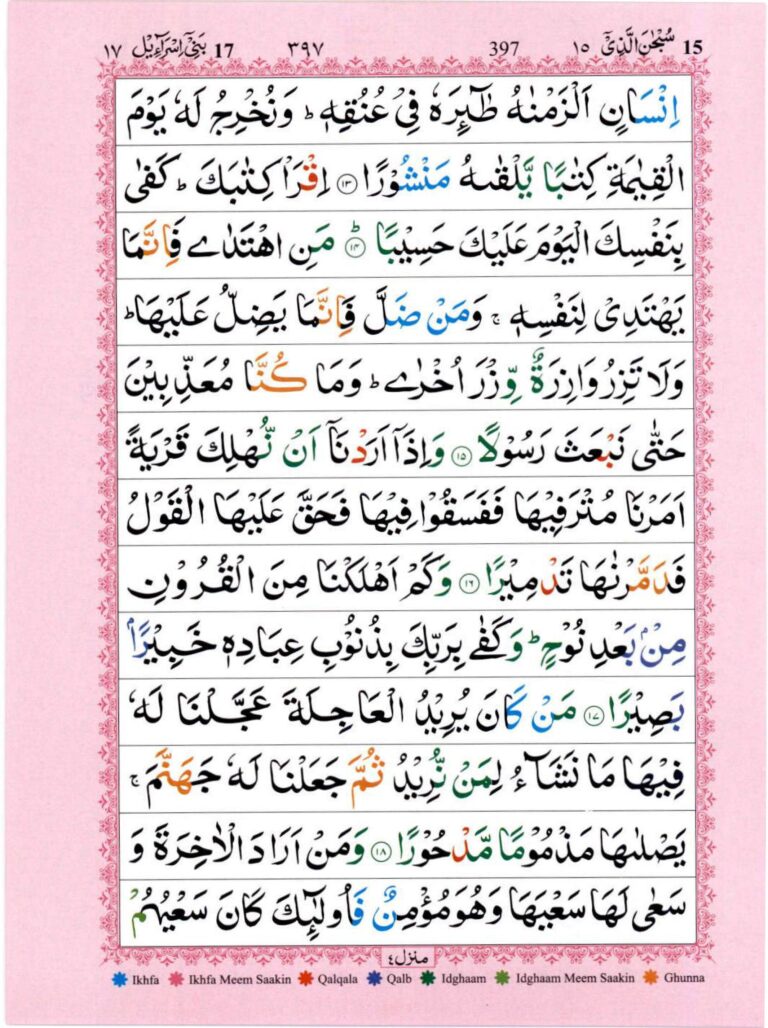 15 سُبْحٰنَ الَّذِیْۤ ١٥ 397 ٣٩٧ 17 بَنِیْۤ اِسْرَآءِیْل ١٧
اِنْسَانٍ اَلْزَمْنٰهُ طٰٓئِرَهٗ فِیْ عُنُقِهٖ ؕ وَنُخْرِجُ لَهٗ یَوْمَ
الْقِیٰمَةِ كِتٰبًا یَّلْقٰىهُ مَنْشُوْرًا ﴿١٣﴾ اِقْرَاْ كِتٰبَكَ ؕ كَفٰی
بِنَفْسِكَ الْیَوْمَ عَلَیْكَ حَسِیْبًا ﴿١٤﴾ؕ مَنِ اهْتَدٰی فَاِنَّمَا
یَهْتَدِیْ لِنَفْسِهٖ ۚ وَمَنْ ضَلَّ فَاِنَّمَا یَضِلُّ عَلَیْهَا ؕ
وَلَا تَزِرُ وَازِرَةٌ وِّزْرَ اُخْرٰی ؕ وَمَا كُنَّا مُعَذِّبِیْنَ
حَتّٰی نَبْعَثَ رَسُوْلًا ﴿١٥﴾ وَاِذَاۤ اَرَدْنَاۤ اَنْ نُّهْلِكَ قَرْیَةً
اَمَرْنَا مُتْرَفِیْهَا فَفَسَقُوْا فِیْهَا فَحَقَّ عَلَیْهَا الْقَوْلُ
فَدَمَّرْنٰهَا تَدْمِیْرًا ﴿١٦﴾ وَكَمْ اَهْلَكْنَا مِنَ الْقُرُوْنِ
مِنْۢ بَعْدِ نُوْحٍ ؕ وَكَفٰی بِرَبِّكَ بِذُنُوْبِ عِبَادِهٖ خَبِیْرًۢا
بَصِیْرًا ﴿١٧﴾ مَنْ كَانَ یُرِیْدُ الْعَاجِلَةَ عَجَّلْنَا لَهٗ
فِیْهَا مَا نَشَآءُ لِمَنْ نُّرِیْدُ ثُمَّ جَعَلْنَا لَهٗ جَهَنَّمَ ۚ
یَصْلٰىهَا مَذْمُوْمًا مَّدْحُوْرًا ﴿١٨﴾ وَمَنْ اَرَادَ الْاٰخِرَةَ وَ
سَعٰی لَهَا سَعْیَهَا وَهُوَ مُؤْمِنٌ فَاُولٰٓئِكَ كَانَ سَعْیُهُمْ
منزل ٤
Ikhfa Ikhfa Meem Saakin Qalqala Qalb Idghaam Idghaam Meem Saakin Ghunna